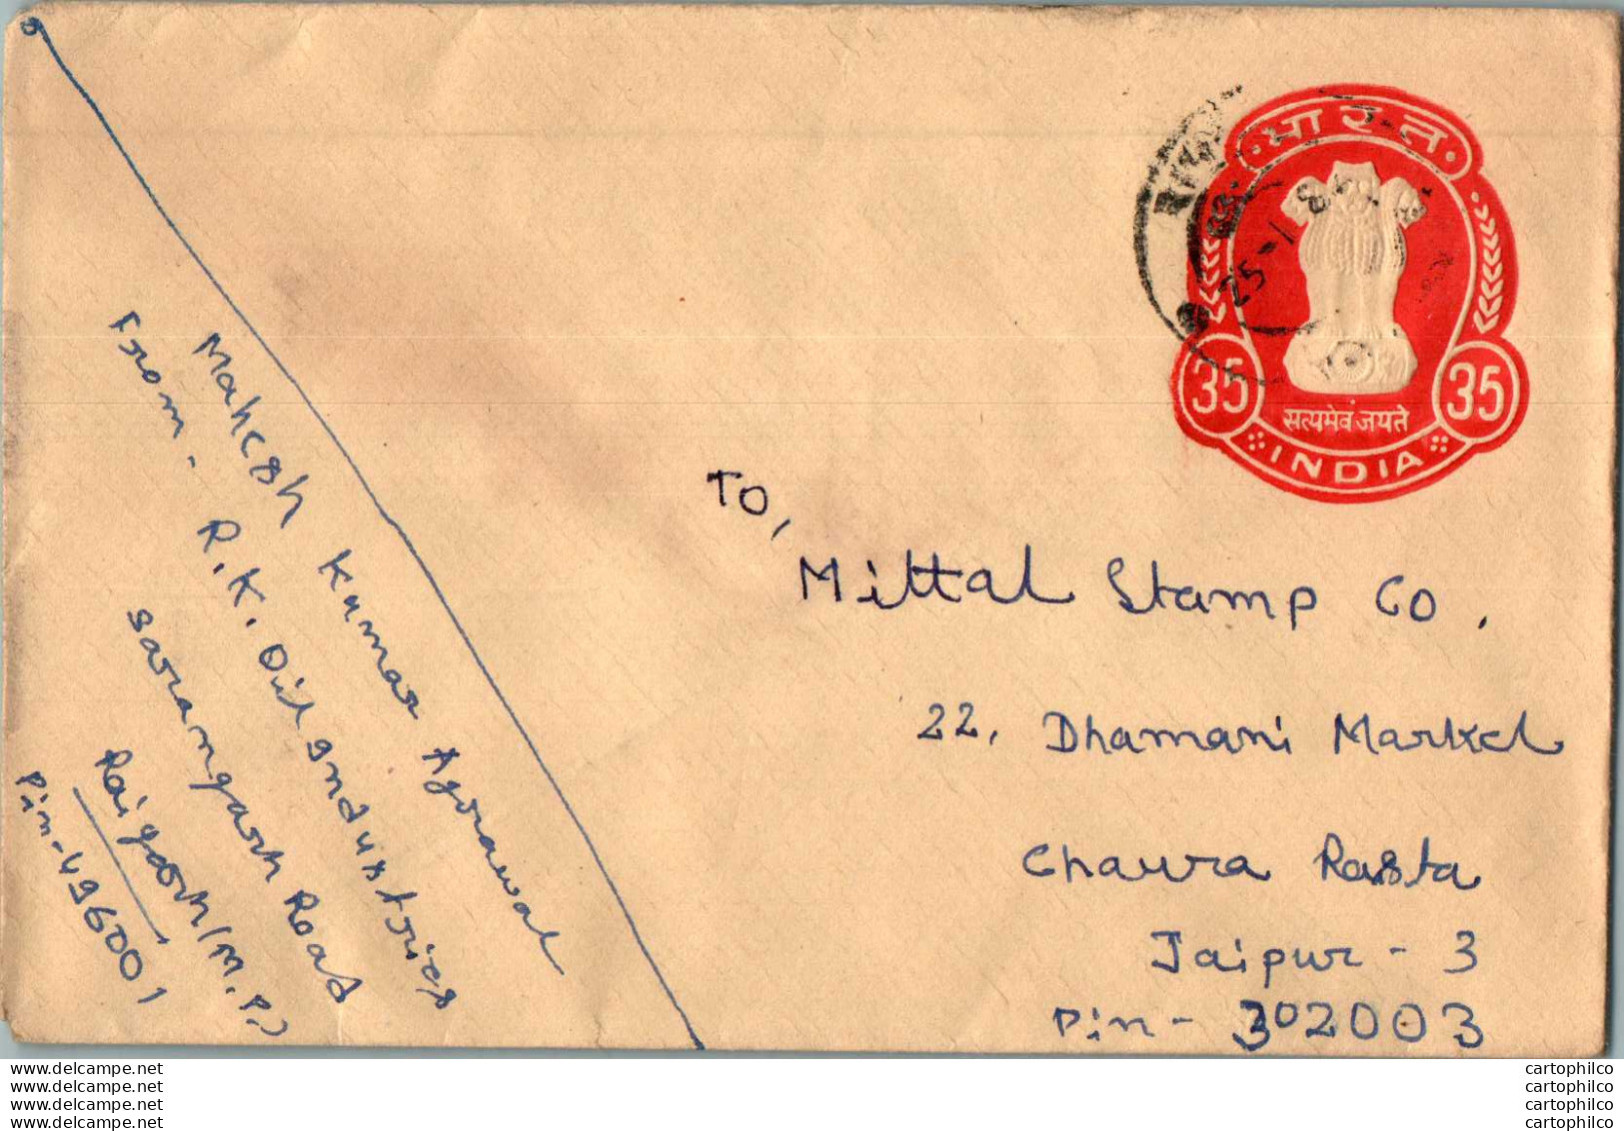 भारत
35 35
सत्यमेव जयते
INDIA
25-1-8
TO,
Mittal Stamp Co.
22, Dhamani Market
Chaura Rasta
Jaipur - 3
Pin - 302003
Mahesh Kumar Agrawal
From - R.K. Oil Industries
Sarangarh Road
Raigarh (M.P.)
Pin-496001
www.delcampe.net
www.delcampe.net
www.delcampe.net
www.delcampe.net
cartophilco
cartophilco
cartophilco
cartophilco